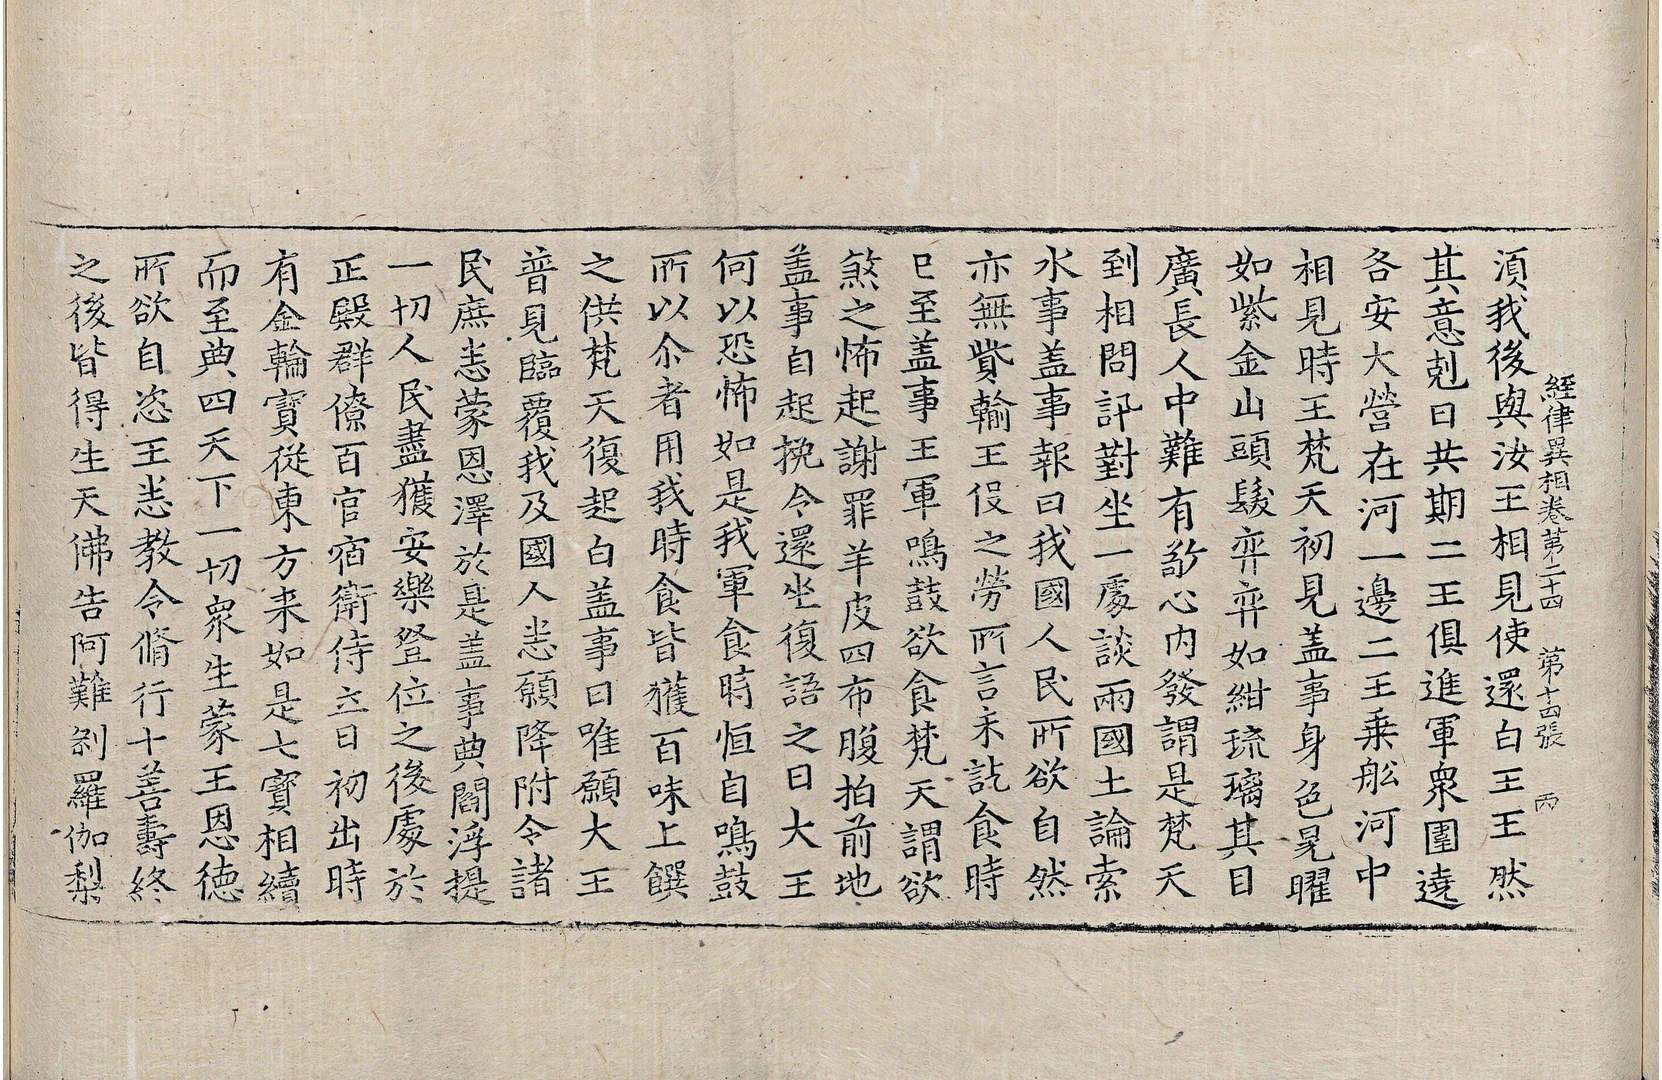 經律異相卷第二十四 第十四張 丙
湏我後與汝王相見使還白王王然
其意剋日共期二王俱進軍衆圍遶
各安大營在河一邊二王乗舩河中
相見時王梵天初見盖事身色晃曜
如紫金山頭髮弈弈如紺琉璃其目
廣長人中難有敬心内發謂是梵天
到相問訊對坐一處談兩國土論索
水事盖事報曰我國人民所欲自然
亦無貲輸王役之勞所言未訖食時
已至盖事王軍鳴鼓欲食梵天謂欲
煞之怖起謝罪羊皮四布腹拍前地
盖事自起挽令還坐復語之曰大王
何以恐怖如是我軍食時恒自鳴鼓
所以尒者用我時食皆獲百味上饌
之供梵天復起白盖事曰唯願大王
普見臨覆我及國人恙願降附令諸
民庶恙蒙恩澤於是盖事典閻浮提
一切人民盡獲安樂登位之後處於
正殿群僚百官宿衛侍立日初出時
有金輪寶從東方来如是七寳相續
而至典四天下一切衆生蒙王恩徳
所欲自恣王恙教令脩行十善壽終
之後皆得生天佛告阿難剎羅伽梨